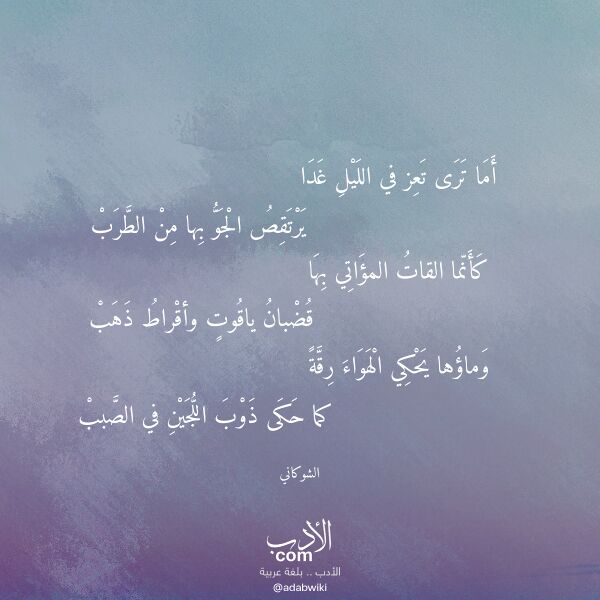 أَمَا تَرَى تَعِز في اللَيْلِ غَدَا
يَرْتَقِصُ الْجَوُّ بِها مِنْ الطَّرَبْ
كَأَنّما القاتُ المؤَاتِي بِهَا
قُضْبانُ ياقُوتٍ وأقْراطُ ذَهَبْ
وَماؤُها يَحْكِي الْهَوَاءَ رِقَّةً
كما حَكَى ذَوْبَ اللُّجَيْنِ في الصَّببْ
الشوكاني
الأدب
com
الأدب .. بلغة عربية
@adabwiki